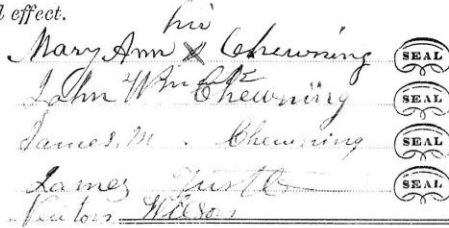 l effect.
his
Mary Ann X Chewning SEAL
John Wm Chewning SEAL
James. M. Chewning SEAL
James SEAL
Wilson